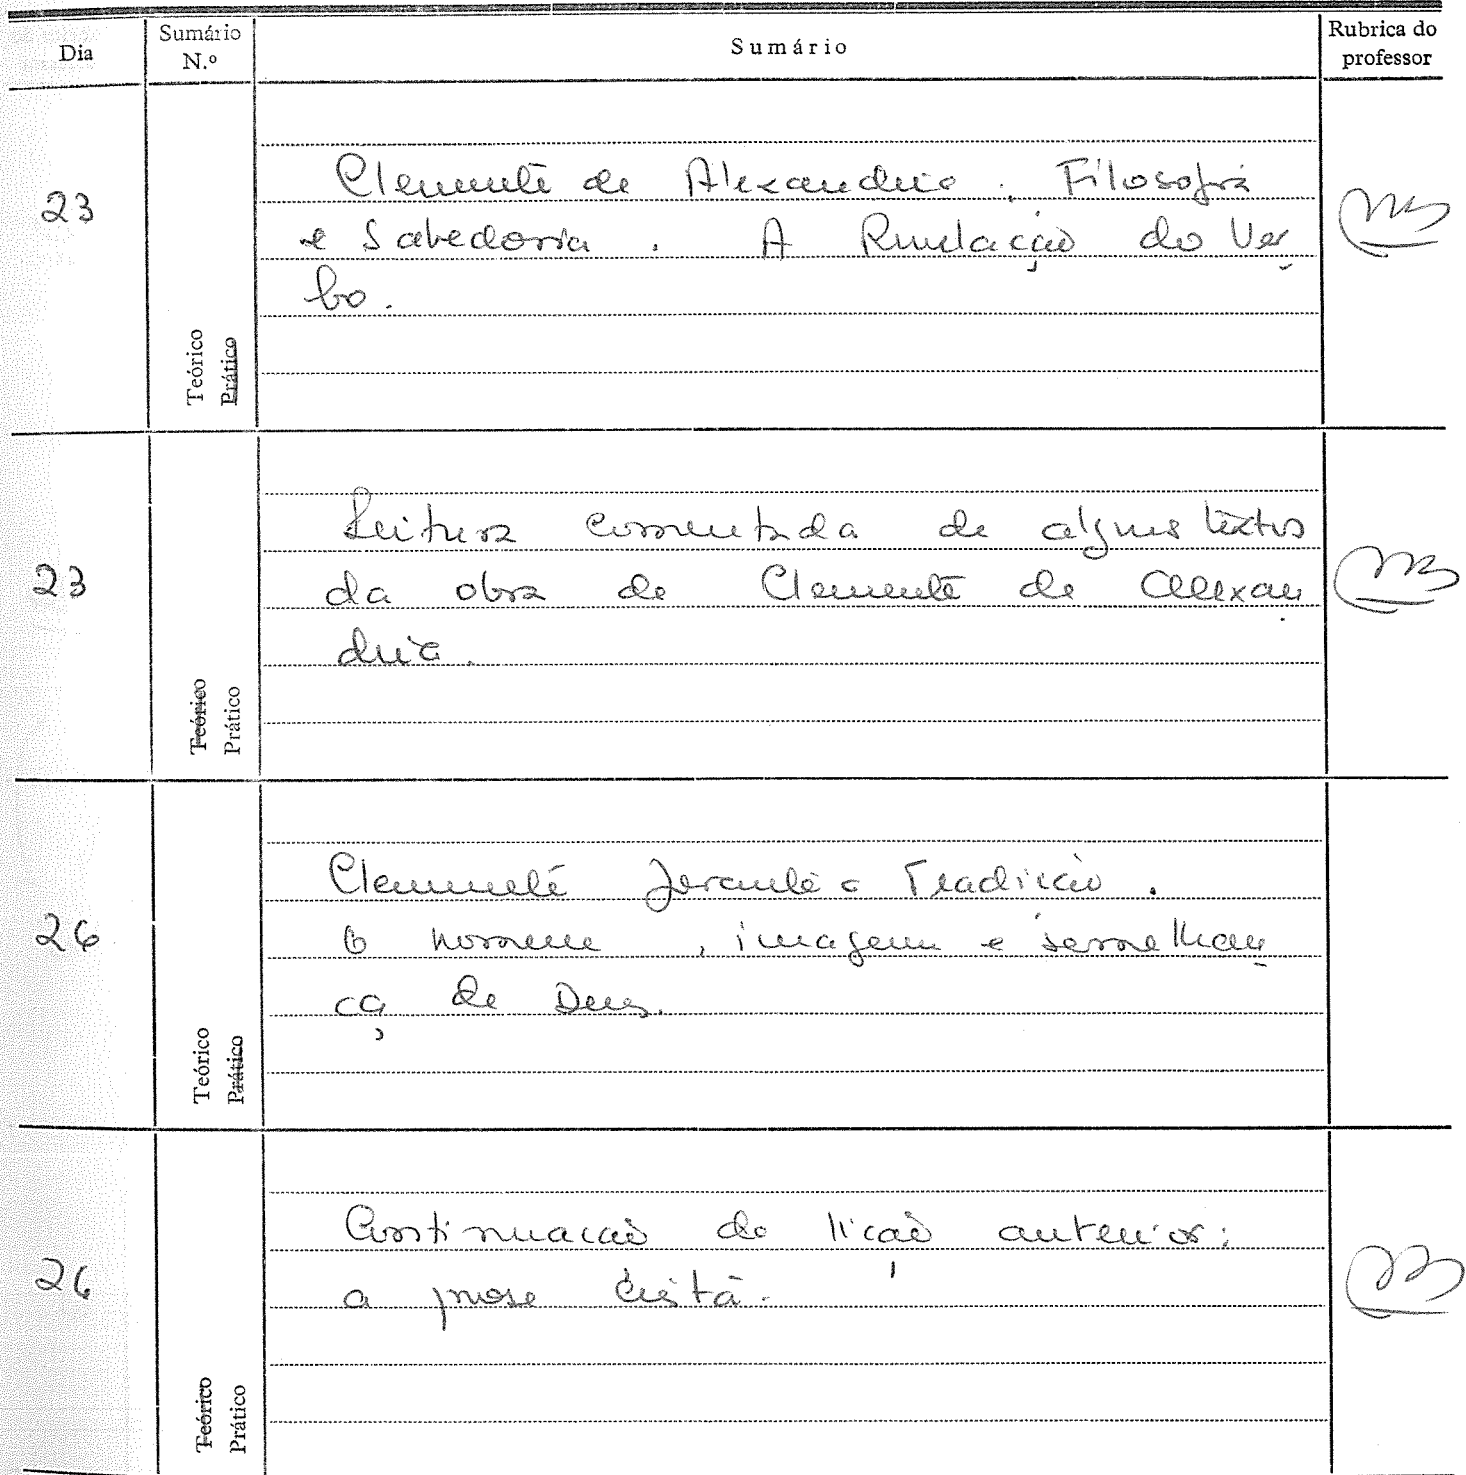 Dia
Sumário N.º
Sumário
Rubrica do professor
23
Teórico
Prático
Clemente de Alexandria. Filosofia
e Sabedoria. A Revelação do Ver
bo.
23
Teórico
Prático
Leitura comentada de alguns textos
da obra de Clemente de Alexan
dria.
26
Teórico
Prático
Clemente perante a Tradição.
O homem, imagem e semelhan
ça de Deus.
26
Teórico
Prático
Continuação da lição anterior:
a gnose cristã.